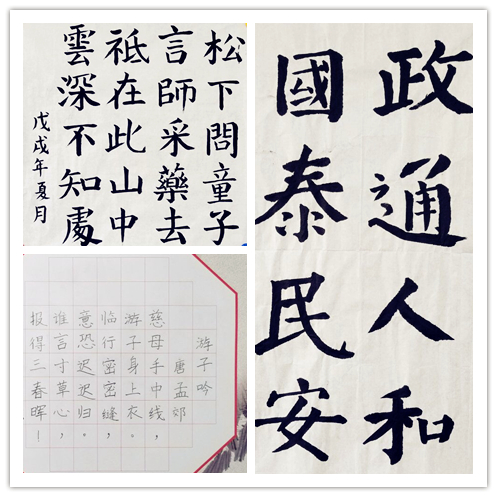 松下問童子
言師采藥去
祗在此山中
雲深不知處
戊戌年夏月
游子吟
唐孟郊
慈母手中线，
游子身上衣。
临行密密缝，
意恐迟迟归。
谁言寸草心，
报得三春晖！
政通人和
國泰民安